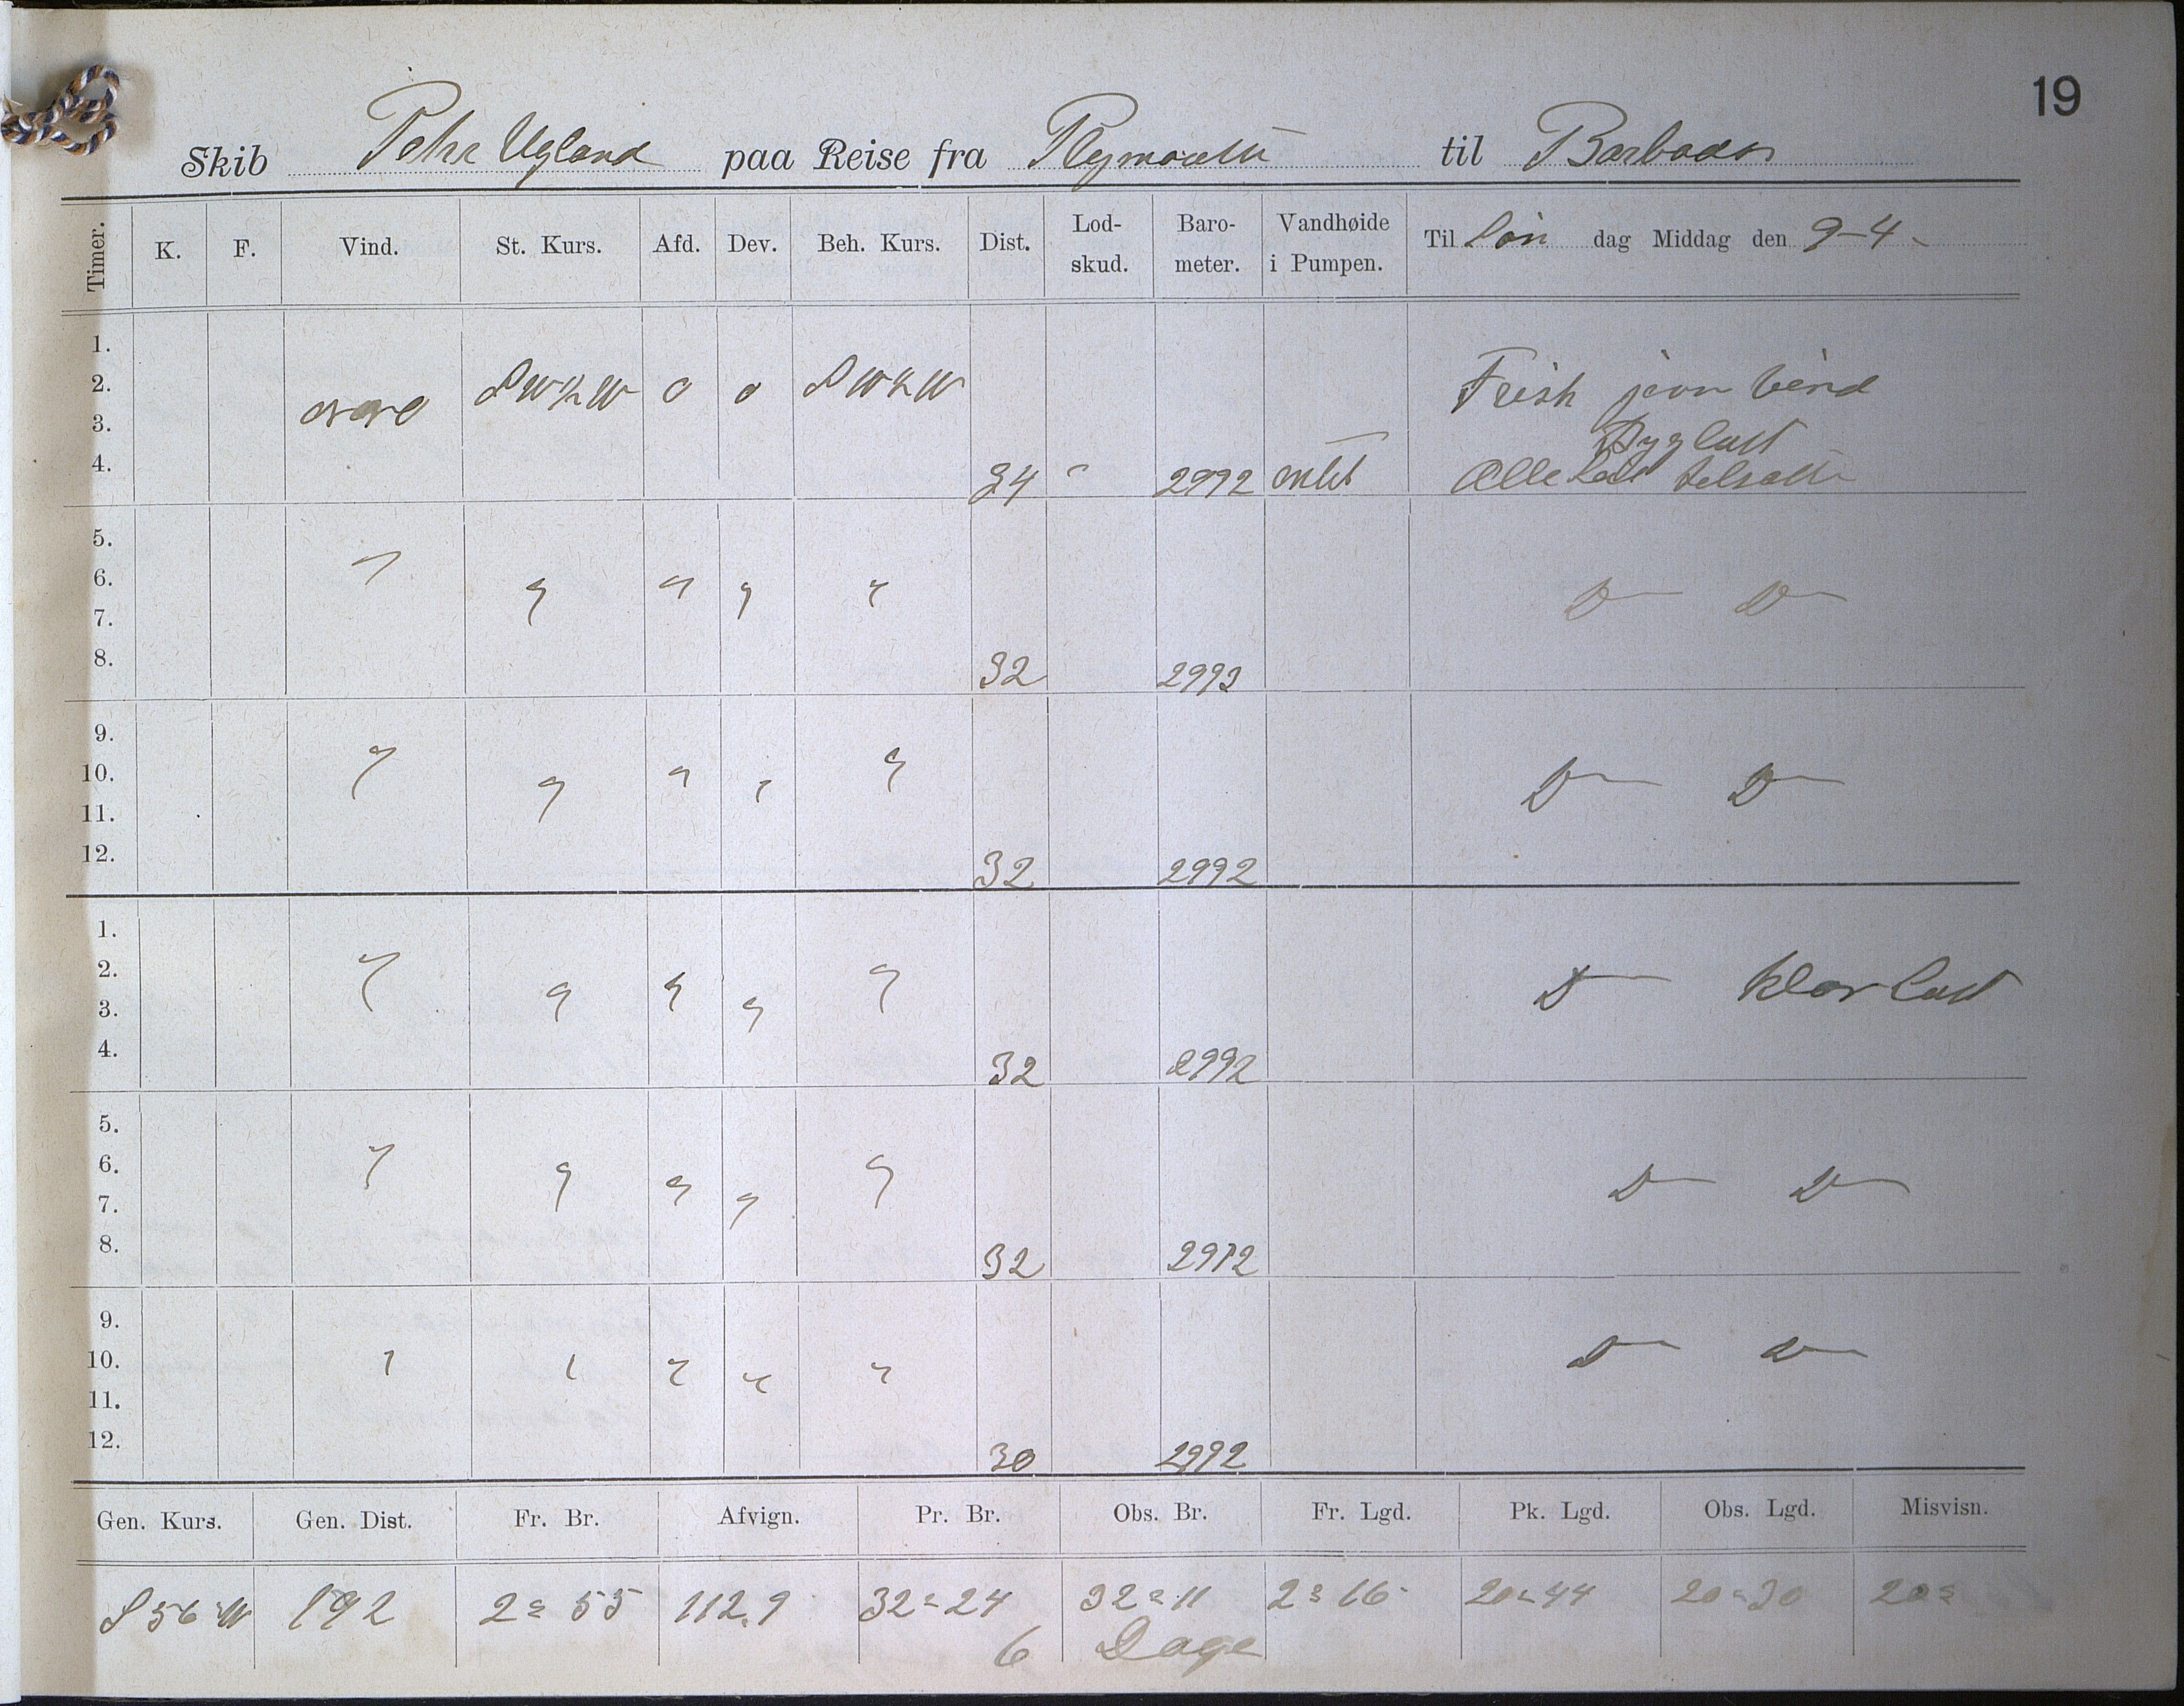 19
Skib Peter Ugland paa Reise fra Plymouth til Barbados
Timer. K. F. Vind. St. Kurs. Afd. Dev. Beh. Kurs. Dist. Lod-skud. Baro-meter. Vandhøide i Pumpen. Til Søn dag Middag den 9-4-
1.
2. SW½W 0 0 SW½W Frisk jevn vind
3.
Bygluft
4. 34 " 2992 entet Alle seil tilsatte
5.
6. " " " " " D— D—
7.
8. 32 2993
9.
10. " " " " " D— D—
11.
12. 32 2992
1.
2. " " " " " D— klar luft
3.
4. 32 2992
5.
6. " " " " " D— D—
7.
8. 32 2992
9.
10. " " " " " D— D—
11.
12. 30 2992
Gen. Kurs. Gen. Dist. Fr. Br. Afvign. Pr. Br. Obs. Br. Fr. Lgd. Pk. Lgd. Obs. Lgd. Misvisn.
S 56° W 192 2° 55 112,9 32° 24 32° 11 2° 16 20° 44 20° 30 20°
6 Dage